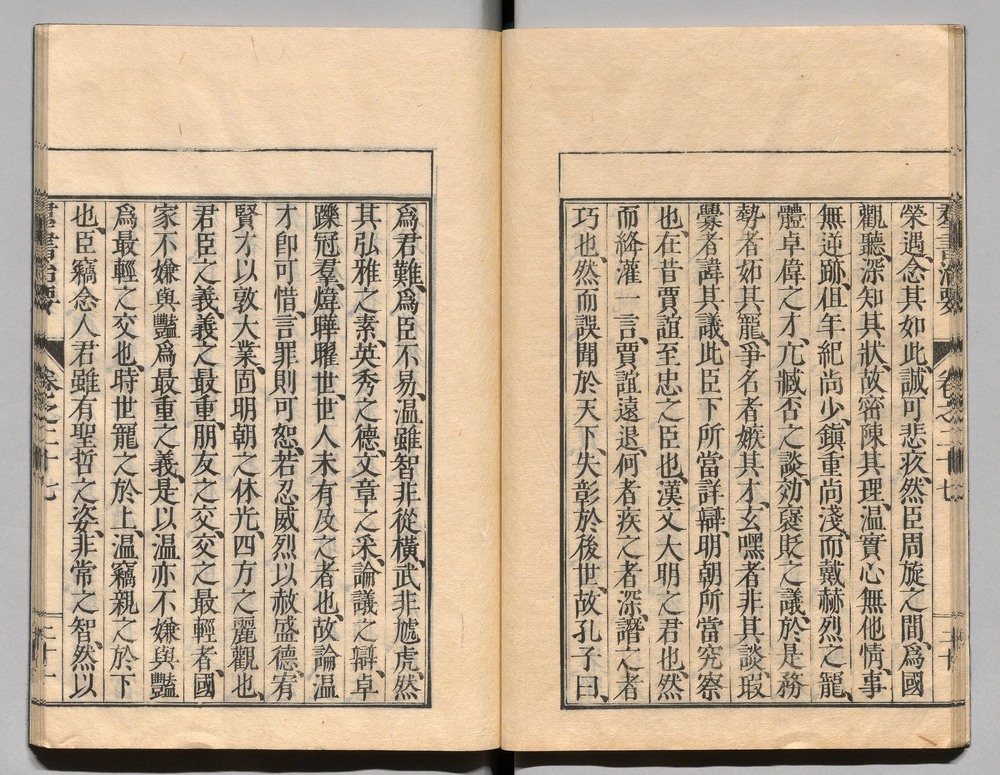 羣書治要 卷之二十七 二十
榮遇、念其如此、誠可悲疚、然臣周旋之間、爲國
觀聽、深知其狀、故密陳其理、温實心無他情、事
無逆跡、但年紀尚少、鎮重尚淺、而戴赫烈之寵、
體卓偉之才、亢臧否之談、効襃貶之議、於是務
勢者妬其寵、爭名者嫉其才、玄嘿者非其談、瑕
釁者諱其議、此臣下所當詳辯、明朝所當究察
也、在昔賈誼至忠之臣也、漢文大明之君也、然
而絳灌一言、賈誼遠退、何者疾之者深、譖之者
巧也、然而誤聞於天下、失彰於後世、故孔子曰、
爲君難、爲臣不易、温雖智非從橫、武非虓虎、然
其弘雅之素、英秀之德、文章之采、論議之辯、卓
躒冠羣、煒曄曜世、世人未有及之者也、故論温
才卽可惜、言罪則可恕、若忍威烈以赦盛德、宥
賢才以敦大業、固明朝之休光、四方之麗觀也、
君臣之義、義之最重、朋友之交、交之最輕者、國
家不嫌與豔爲最重之義、是以温亦不嫌與豔
爲最輕之交也、時世寵之於上、温竊親之於下
也、臣竊念人君雖有聖哲之姿、非常之智、然以
羣書治要 卷之二十七 二十一